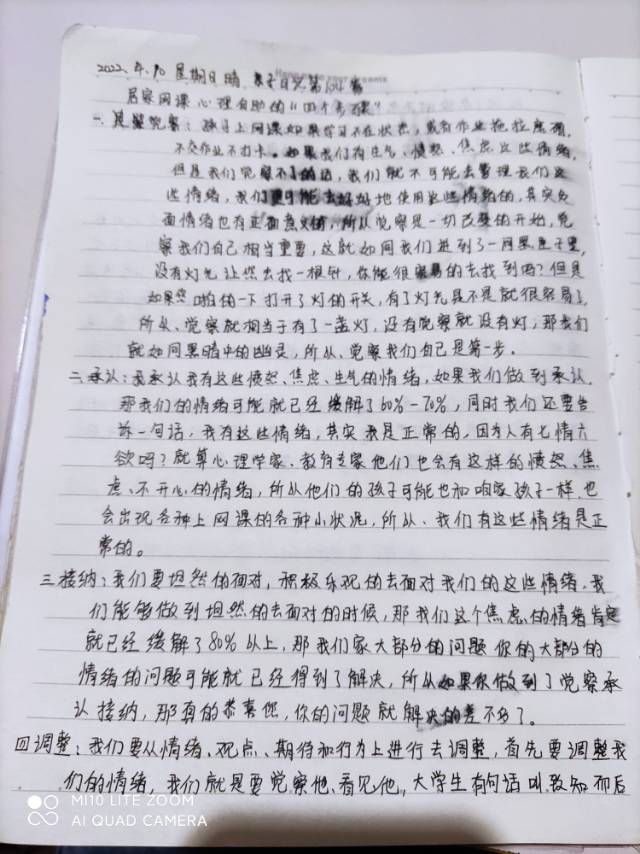 2022.4.10 星期日 晴 亲子日记第104篇
居家网课心理自助的"四个步骤"
一、觉察：孩子上网课如果学习不在状态，或者作业拖拉磨蹭，
不交作业不打卡。如果我们有生气、愤怒、焦虑这些情绪，
但是我们觉察不了的话，我们就不可能去管理我们这
些情绪，我们更可能去好好地使用这些情绪的，其实负
面情绪也有正面意义的，所以觉察是一切改变的开始，觉
察我们自己相当重要，这就如同我们进到了一间黑屋子里，
没有灯光让您去找一根针，你能很容易的去找到吗？但是
如果您啪的一下打开了灯的开关，有了灯光是不是就很容易了，
所以、觉察就相当于有了一盏灯，没有觉察就没有灯，那我们
就如同黑暗中的幽灵，所以、觉察我们自己是第一步。
二、承认：我承认我有这些愤怒、焦虑、生气的情绪，如果我们做到承认，
那我们的情绪可能就已经缓解了60%-70%，同时我们还要告
诉一句话，我有这些情绪，其实我是正常的，因为人有七情六
欲吗？就算心理学家、教育专家他们也会有这样的愤怒、焦
虑、不开心的情绪，所以他们的孩子可能也和咱家孩子一样，也
会出现各种上网课的各种小状况，所以、我们有这些情绪是正
常的。
三、接纳：我们要坦然的面对，积极乐观的去面对我们的这些情绪，我
们能够做到坦然的去面对的时候，那我们这个焦虑的情绪肯定
就已经缓解了80%以上，那我们家大部分的问题你的大部分的
情绪的问题可能就已经得到了解决，所以如果你做到了觉察承
认接纳，那真的恭喜您，你的问题就解决的差不多了。
四、调整：我们要从情绪、观点、期待和行为上进行去调整，首先要调整我
们的情绪，我们就是要觉察他、看见他，大学生有句话叫致知而后
MI 10 LITE ZOOM
AI QUAD CAMERA